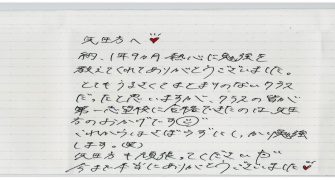 先生方へ♥
約、1年9ヵ月 熱心に勉強を
教えてくれてありがとうございました。
とてもうるさくてまとまりのないクラス
だったと思いますが、クラスの皆が
第一志望校に合格できたのは、先生
方のおかげです
これからはさぼらずにしっかり勉強
します。(笑)
先生方も頑張ってください
今まで本当にありがとうございました♥